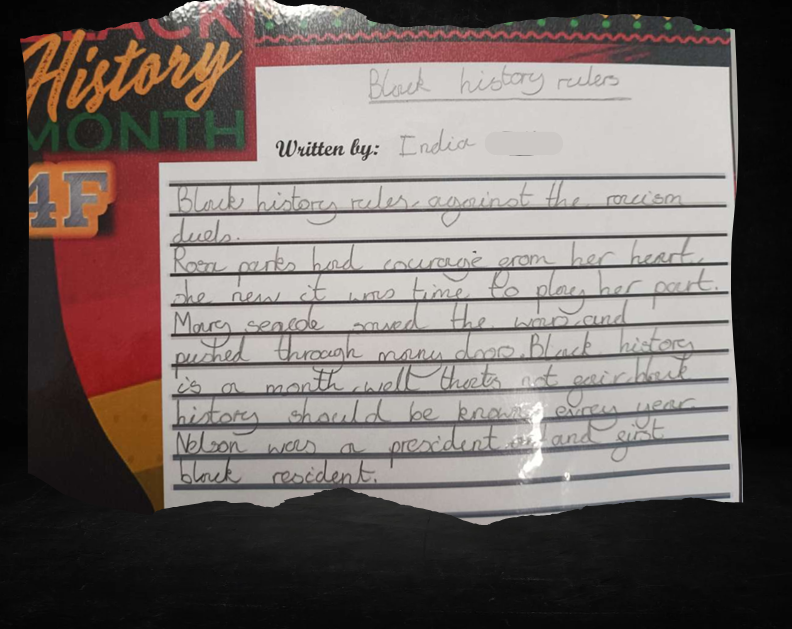 BLACK
History
MONTH
4F
Black history rulers
Written by: India
Black history rules, against the racism
duels.
Rosa parks had couragie from her heart,
she new it was time to play her part.
Mary segcole saved the wars, and
pushed through many doors. Black history
is a month, well thats not fair, black
history should be known evrey year.
Nelson was a president and first
black resident.